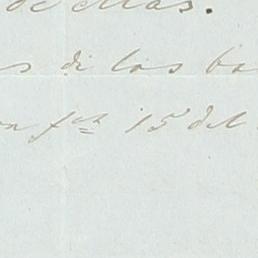 de Mas.
s de los ba
on fcha 15 del